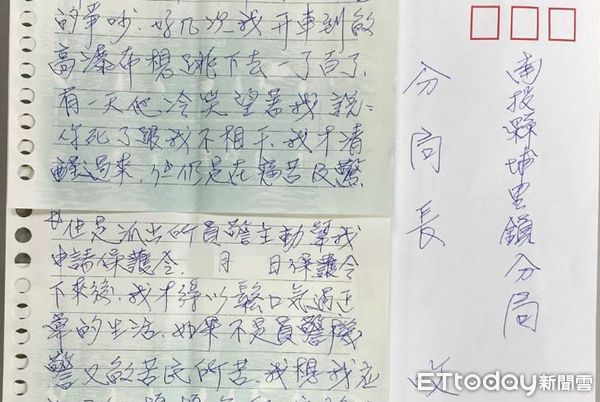 的爭吵、好几次我开車到能
高瀑布想跳下去一了百了、
有一天他冷笑望著我說:
你死了跟我不相干、我才清
醒過來、但仍是在痛苦及驚
但是派出所員警主動幫我
申請保護令、 月 日保護令
下來後、我才得以鬆口氣過正
的生活、如果不是員警機
警又能苦民所苦 我想我应
南投縣埔里鎮分局
分局長 收
ETtoday新聞雲